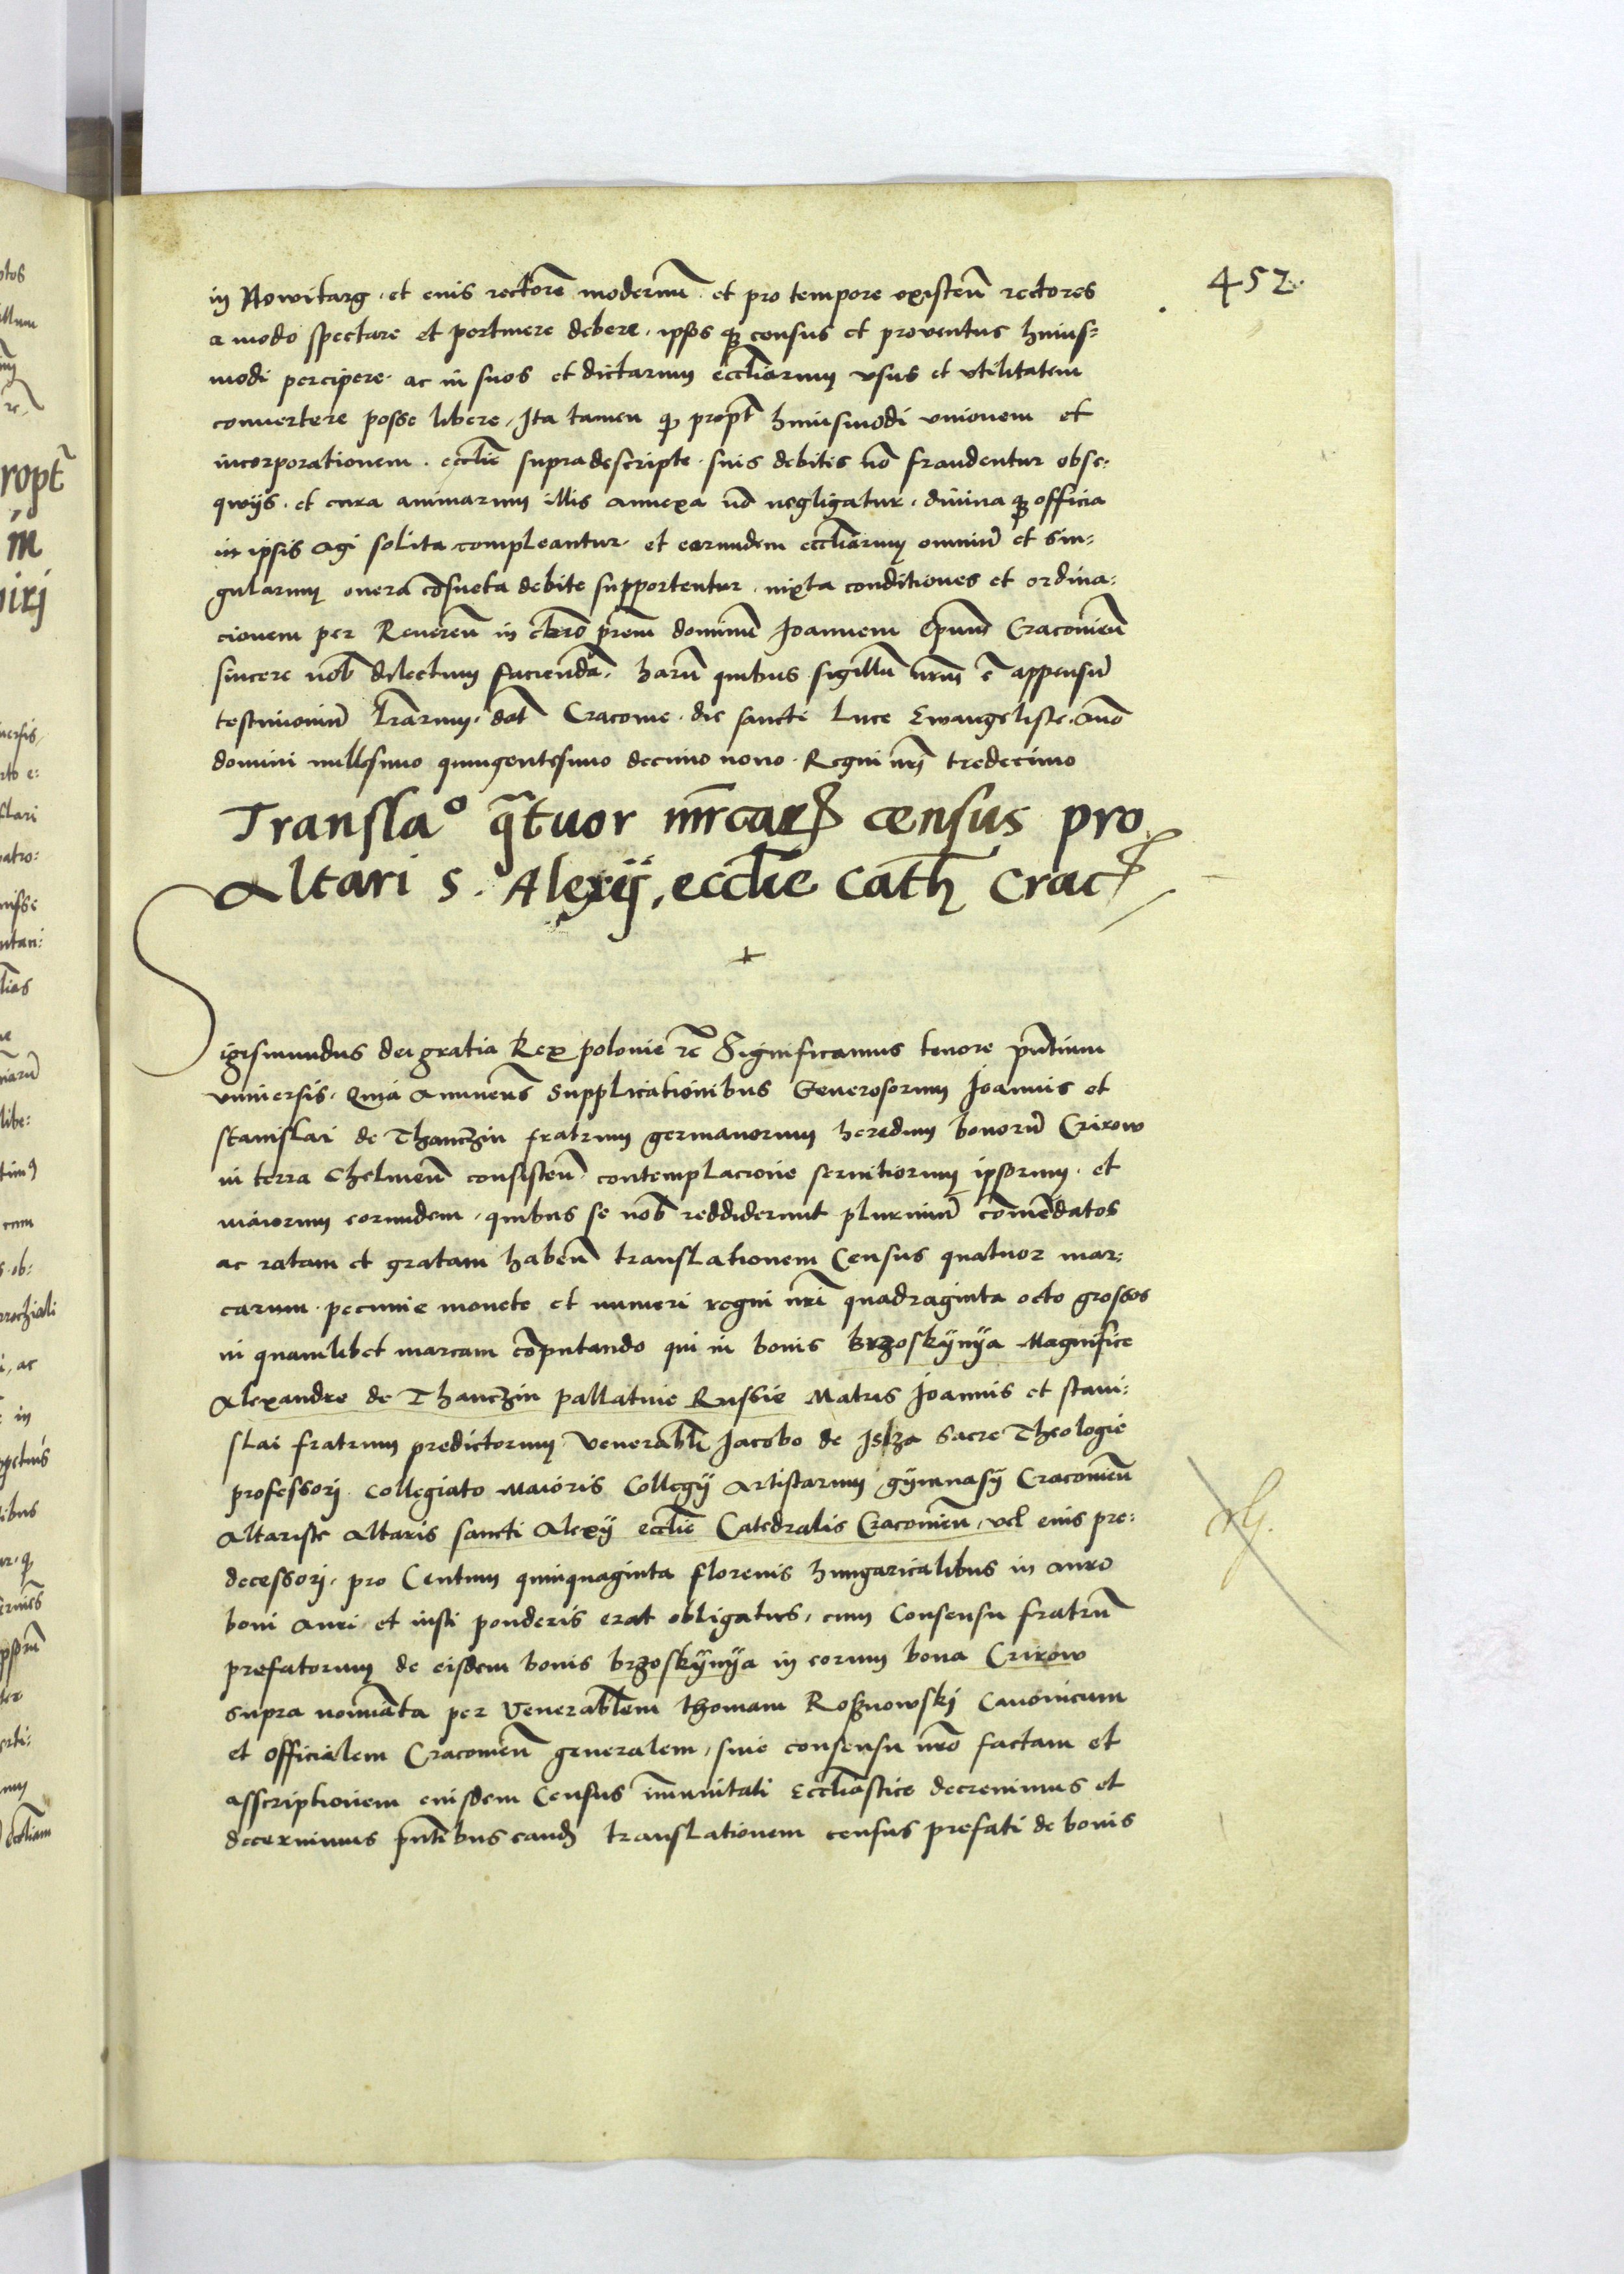 452
in Nowitarg. et eius rectorē modernū et pro tempore existeñ rectores
a modo spectare et pertinere debere. ipsosqꝫ census et proventus huius=
modi percipere. ac in suos et dictarum eccliarum vsus et vtilitatem
convertere posse libere, Ita tamen qꝫ propt̄ huiusmodi vnionem et
incorporationem. ecclie supradescripte. suis debitis nō fraudentur obse=
qwijs. et cura animarum illis annexa nō negligatur. divinaqꝫ officia
in ipsis agi solita compleantur. et earundem eccliarum omniū et sin=
gularum onera cōsueta debite supportentur. iuxta conditiones et ordina=
cionem per Reuereñ in chro prem dominū Joannem Epum Cracovieñ
sincere nob̄ dilectum faciendā. harū quibus sigillū nrm ē appensū
testimoniū lrarum. dat̄ Cracovie. die sancti Luce Ewangeliste. Anō
domini millesimo quingentesimo decimo nono. Regni nri tredecimo
Translaº qatuor mrcarꝝ census pro
Altari S. Alexij, ecclie Cath Crac
Sigismundus dei gratia Rex polonie rc Significamus tenore pñtium
vniuersis. Quia Annuens Supplicationibus Generosorum Joannis et
Stanislai de Thanczin fratrum germanorum heredum bonorū Crirow
in terra Chelmeñ consisteñ contemplacione seruitiorum ipsorum. et
maiorum eorundem. quibus se nob̄ reddiderunt plurimū comēdatos
ac ratam et gratam habeñ translationem Census quatuor mar=
carum. pecunie monete et numeri regni nri quadraginta octo grossos
in quamlibet marcam cōputando qui in bonis Brzoskÿnÿa Magnifice
Alexandre de Thanczin pallatine Russie Matris Joannis et stani=
slai fratrum predictorum, Venerabli Jacobo de Islza Sacre Theologie
professori Collegiato Maioris Collegÿ Artistarum gÿmnasÿ Cracovieñ
Altariste Altaris sancti Alexÿ ecclie Catedralis Cracovieñ, vel eius pre=
decessori, pro Centum quinquaginta florenis hungaricalibus in auro
boni auri et iusti ponderis erat obligatus, cum Consensu fratrū
prefatorum de eisdem bonis brzoskÿnÿa in eorum bona Crirow
supra nominata per Venerablem thomam Rosznowski Canonicum
et officialem Cracovieñ generalem, sine consensu nro factam et
asscriptionem eiusdem Census imunitati Eccliastice decreuimus et
decernimus pñtibus eand translationem census prefati de bonis